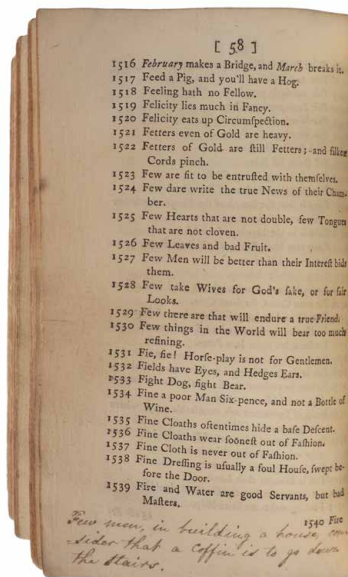 [ 58 ]
1516 February makes a Bridge, and March breaks it.
1517 Feed a Pig, and you'll have a Hog.
1518 Feeling hath no Fellow.
1519 Felicity lies much in Fancy.
1520 Felicity eats up Circumſpection.
1521 Fetters even of Gold are heavy.
1522 Fetters of Gold are ſtill Fetters; and ſilken
Cords pinch.
1523 Few are fit to be entruſted with themſelves.
1524 Few dare write the true News of their Cham-
ber.
1525 Few Hearts that are not double, few Tongues
that are not cloven.
1526 Few Leaves and bad Fruit.
1527 Few Men will be better than their Intereſt bids
them.
1528 Few take Wives for God's ſake, or for fair
Looks.
1529 Few there are that will endure a true Friend.
1530 Few things in the World will bear too much
refining.
1531 Fie, fie! Horſe-play is not for Gentlemen.
1532 Fields have Eyes, and Hedges Ears.
1533 Fight Dog, fight Bear.
1534 Fine a poor Man Six-pence, and not a Bottle of
Wine.
1535 Fine Cloaths oftentimes hide a baſe Deſcent.
1536 Fine Cloaths wear ſooneſt out of Faſhion.
1537 Fine Cloth is never out of Faſhion.
1538 Fine Dreſſing is uſually a foul Houſe, ſwept be-
fore the Door.
1539 Fire and Water are good Servants, but bad
Maſters.
1540 Fire
Few men, in building a house, con
sider that a Coffin is to go down
the Stairs.